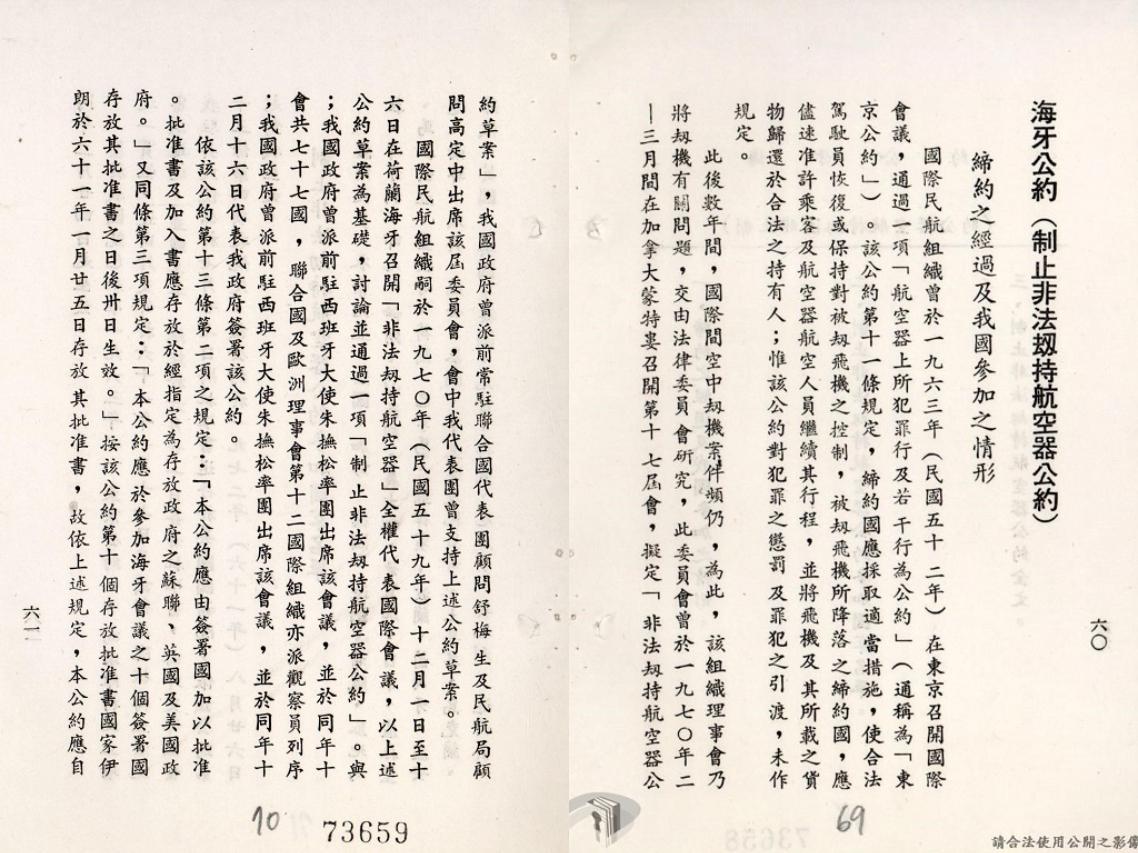 海牙公約（制止非法刼持航空器公約）
締約之經過及我國參加之情形
國際民航組織曾於一九六三年（民國五十二年）在東京召開國際
會議，通過一項「航空器上所犯罪行及若干行為公約」（通稱為「東
京公約」）。該公約第十一條規定，締約國應採取適當措施，使合法
駕駛員恢復或保持對被刼飛機之控制，被刼飛機所降落之締約國，應
儘速准許乘客及航空器航空人員繼續其行程，並將飛機及其所載之貨
物歸還於合法之持有人；惟該公約對犯罪之懲罰及罪犯之引渡，未作
規定。
此後數年間，國際間空中刼機案件頻仍，為此，該組織理事會乃
將刼機有關問題，交由法律委員會研究，此委員會曾於一九七〇年二
—三月間在加拿大蒙特婁召開第十七屆會，擬定「非法刼持航空器公
六〇
69
約草案」，我國政府曾派前常駐聯合國代表團顧問舒梅生及民航局顧
問高定中出席該屆委員會，會中我代表團曾支持上述公約草案。
國際民航組織嗣於一九七〇年（民國五十九年）十二月一日至十
六日在荷蘭海牙召開「非法刼持航空器」全權代表國際會議，以上述
公約草案為基礎，討論並通過一項「制止非法刼持航空器公約」。與
會共七十七國，聯合國及歐洲理事會第十二國際組織亦派觀察員列席
；我國政府曾派前駐西班牙大使朱撫松率團出席該會議，並於同年十
二月十六日代表我政府簽署該公約。
依該公約第十三條第二項之規定：「本公約應由簽署國加以批准
。批准書及加入書應存放於經指定為存放政府之蘇聯、英國及美國政
府。」又同條第三項規定：「本公約應於參加海牙會議之十個簽署國
存放其批准書之日後卅日生效。」按該公約第十個存放批准書國家伊
朗於六十一年一月廿五日存放其批准書，故依上述規定，本公約應自
六一
70
73659
請合法使用公開之影像